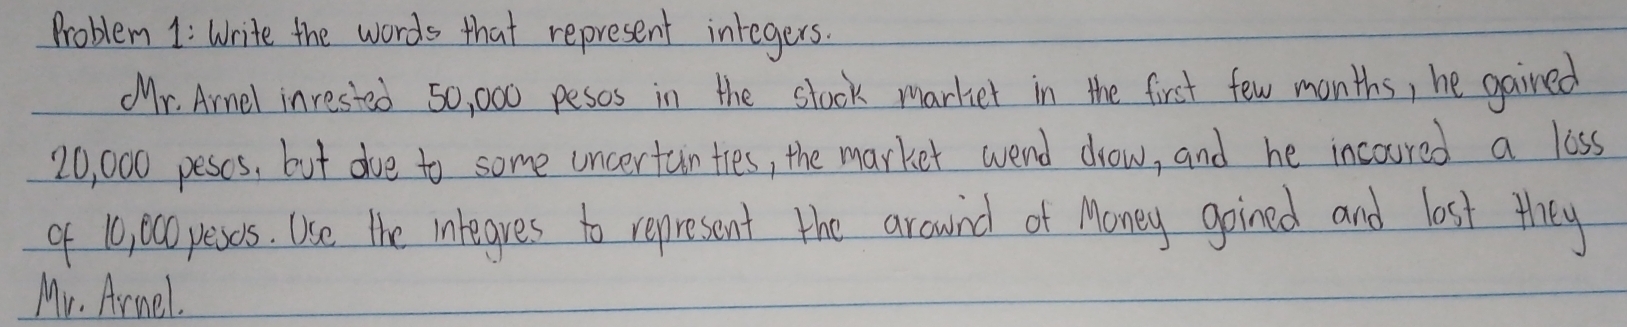 Problem 1: Write the words that represent integers.
Mr. Arnel invested 50,000 pesos in the stock market in the first few months, he gained
20,000 pesos, but due to some uncertainties, the market wend drow, and he incoured a loss
of 10,000 pesos. Use the integres to represent the arownd of Money goined and lost they
Mr. Arnel.